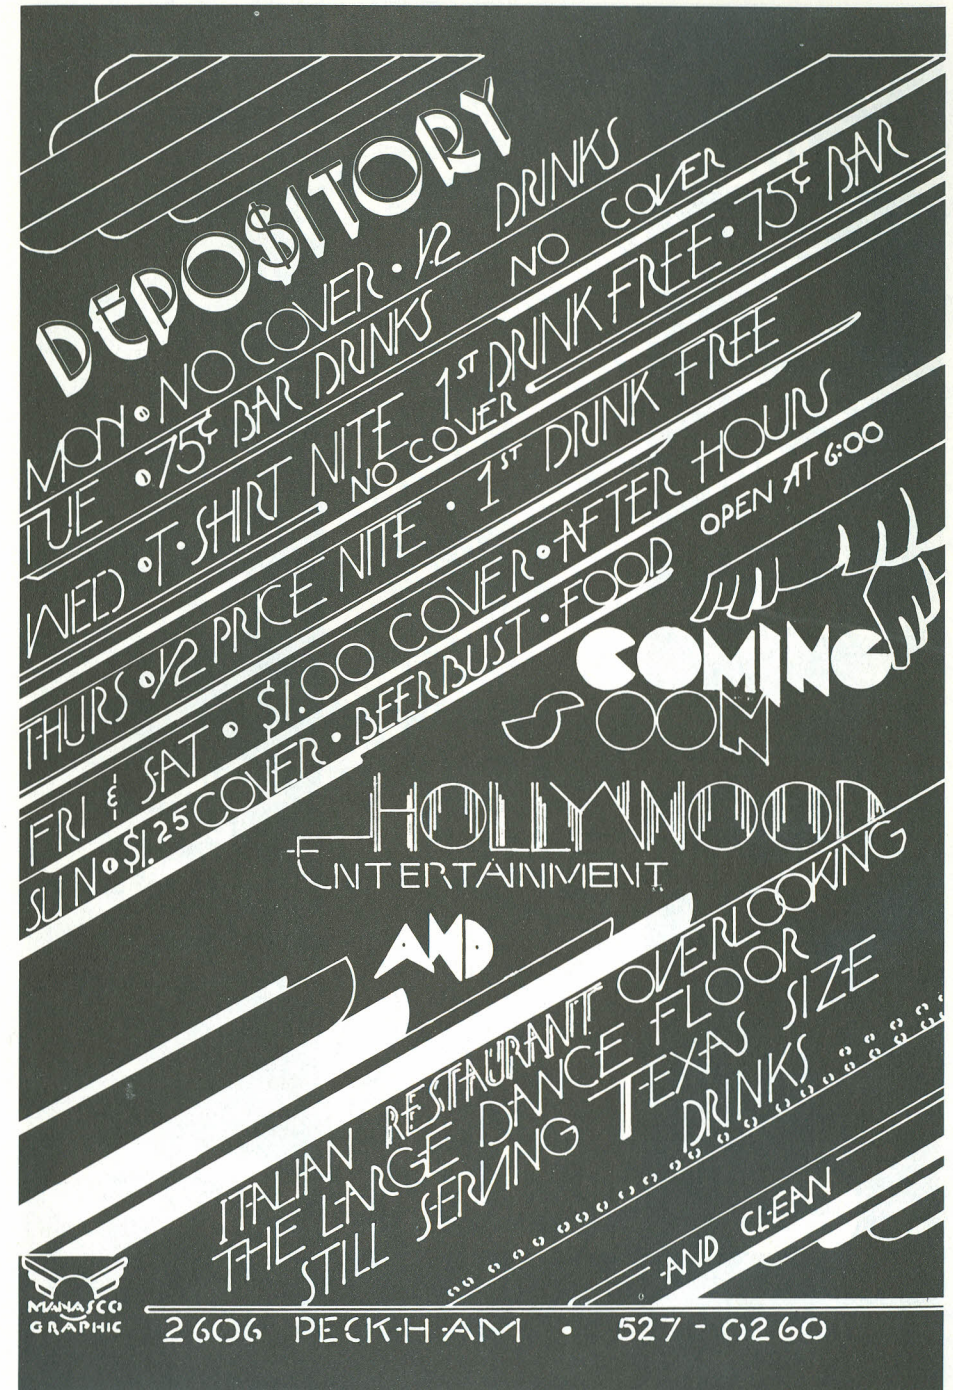 DEPO$ITORY
MON • NO COVER • 1/2 DRINKS
TUE • 75¢ BAR DRINKS NO COVER
WED • T-SHIRT NITE 1ST DRINK FREE • 75¢ BAR
NO COVER
THURS • 1/2 PRICE NITE • 1ST DRINK FREE
FRI & SAT • $1.00 COVER • AFTER HOURS
SUN • $1.25 COVER • BEER BUST • FOOD OPEN AT 6:00
COMING
SOON
HOLLYWOOD
ENTERTAINMENT
AND
ITALIAN RESTAURANT OVERLOOKING
THE LARGE DANCE FLOOR
STILL SERVING TEXAS SIZE
DRINKS
AND CLEAN
MANASCO
GRAPHIC
2606 PECKHAM • 527-0260